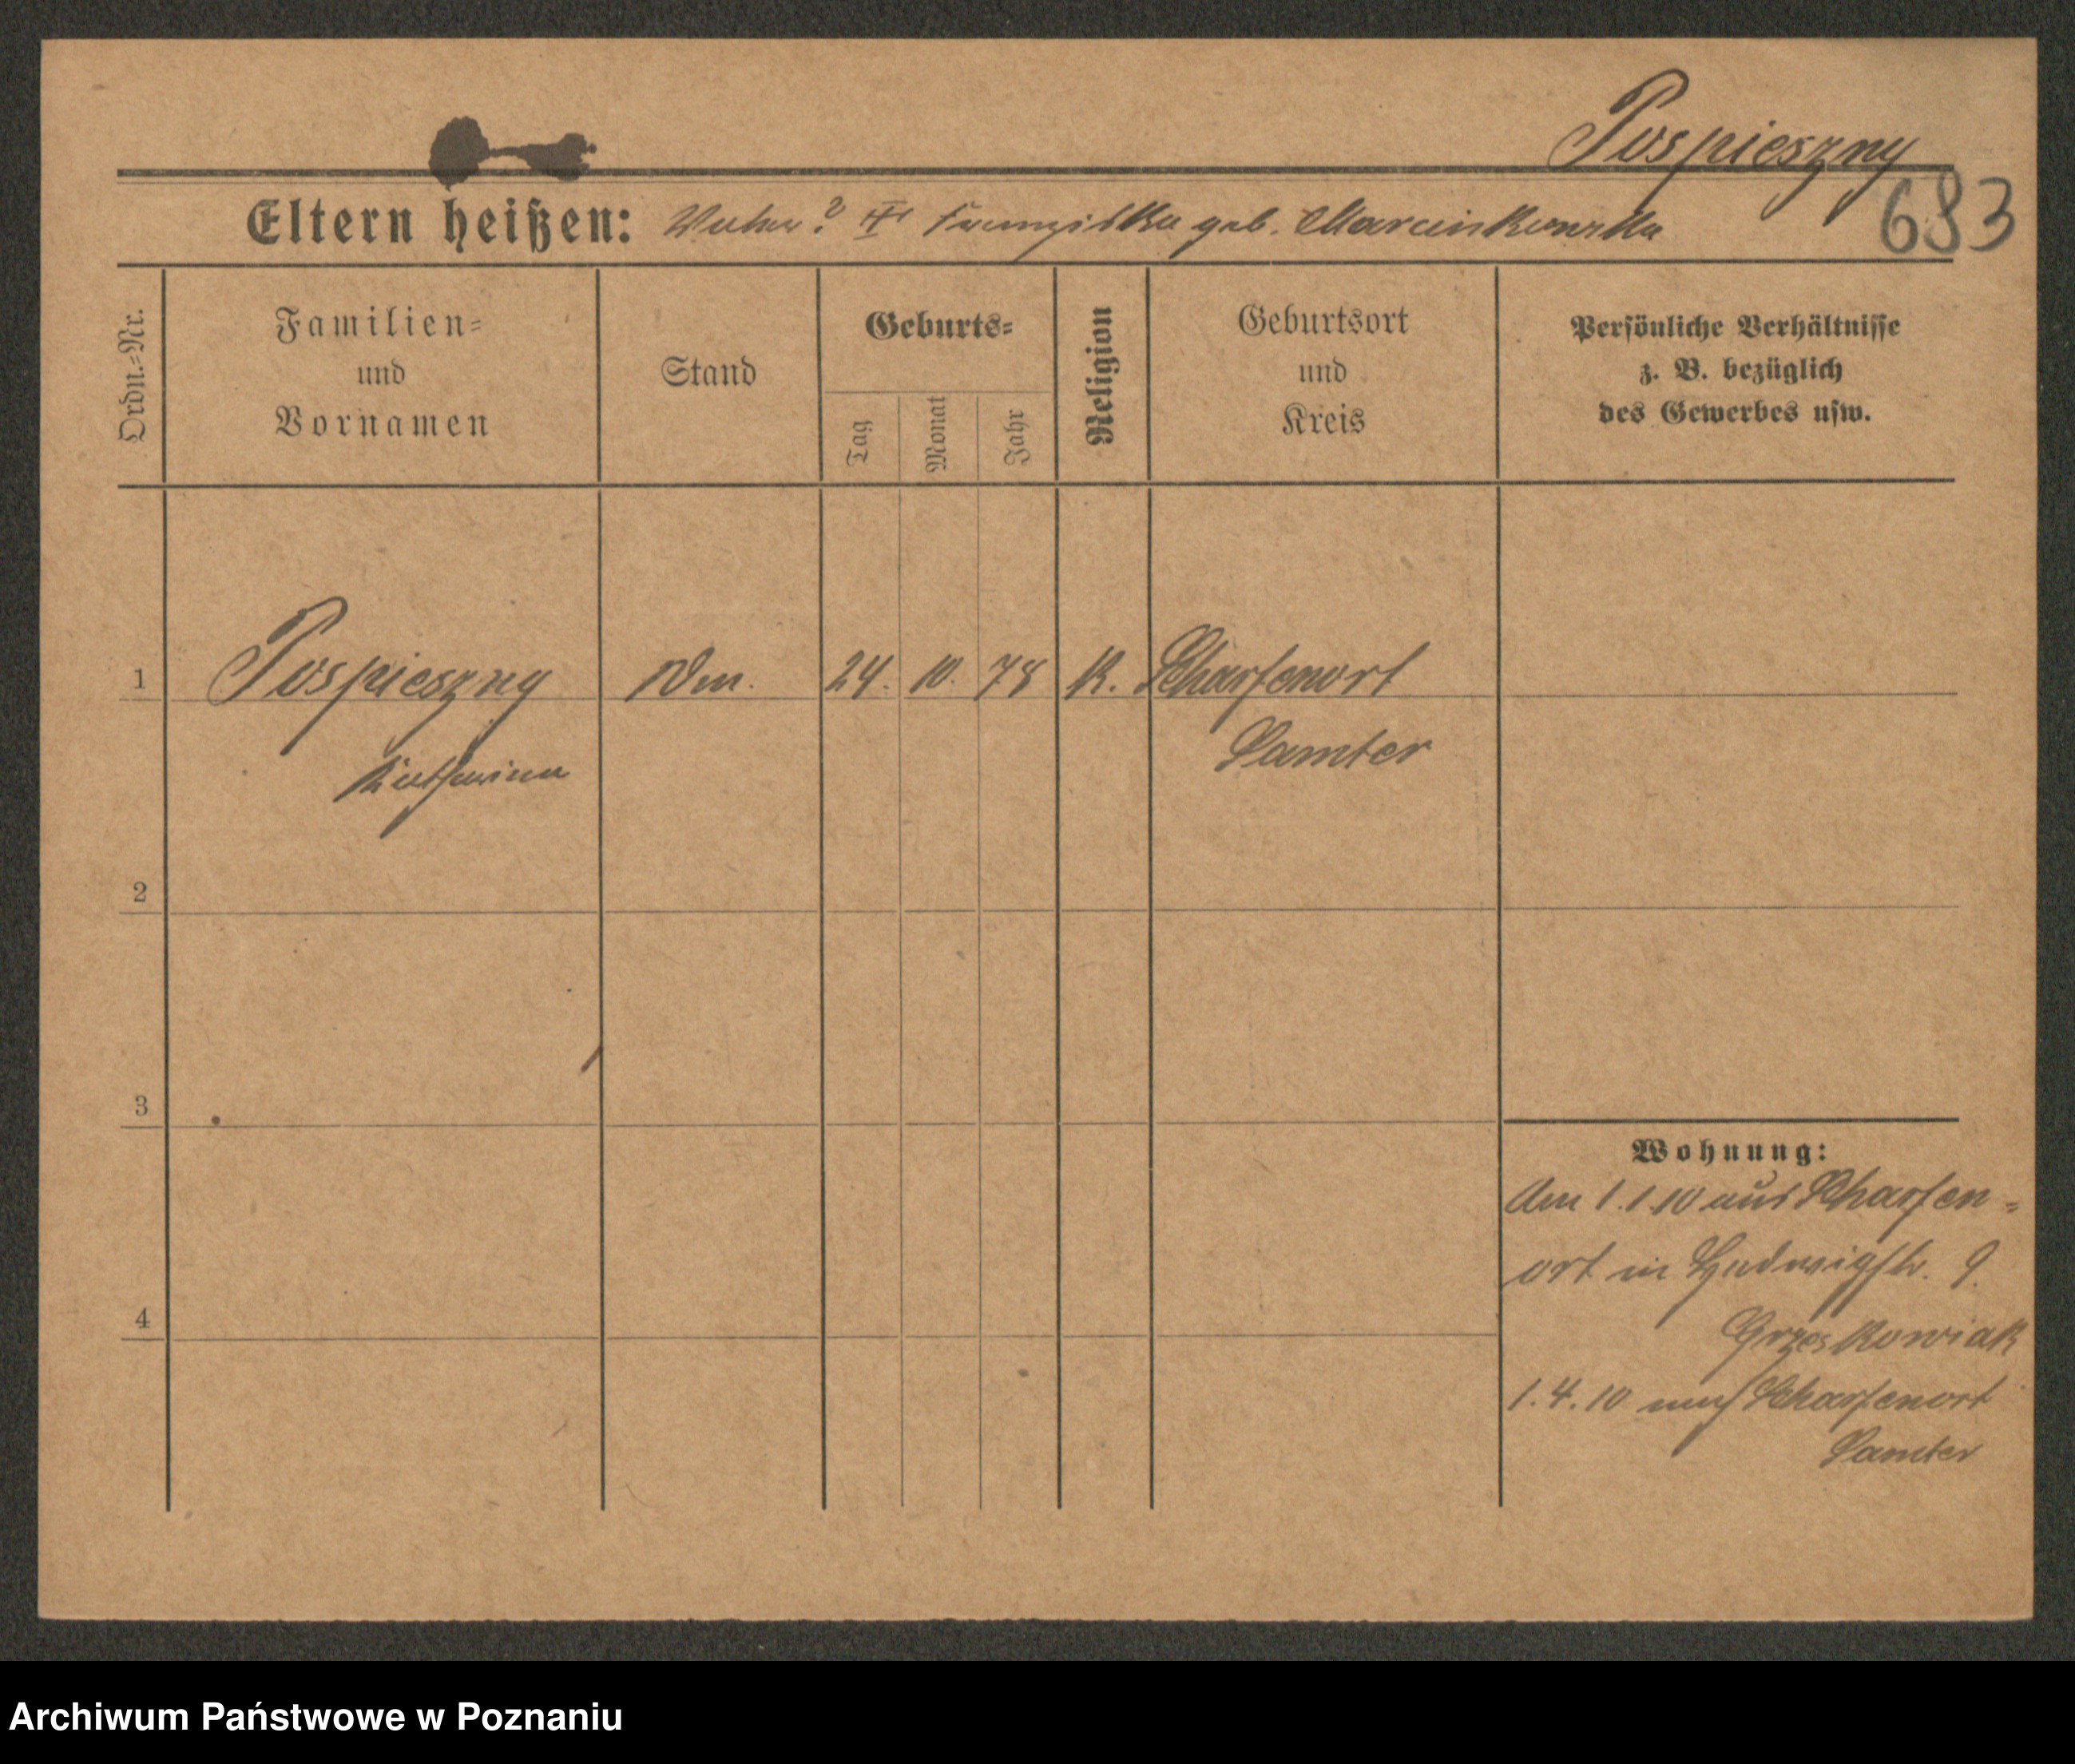 Pospieszny
683
Eltern heißen: Vater ? Franziska geb. Marcinkowska
Ordn.=Nr.
Familien=
und
Vornamen
Stand
Geburts=
Tag
Monat
Jahr
Religion
Geburtsort
und
Kreis
Persönliche Verhältnisse
z. B. bezüglich
des Gewerbes usw.
1 Pospieszny 24. 10. 78 K. Scharfenort
Katharina Samter
2
3
4
Wohnung:
Am 1.1.10 aus Scharfen=
ort in Hedwigstr. 9.
Grzeskowiak
1.4.10 nach Scharfenort
Samter
Archiwum Państwowe w Poznaniu